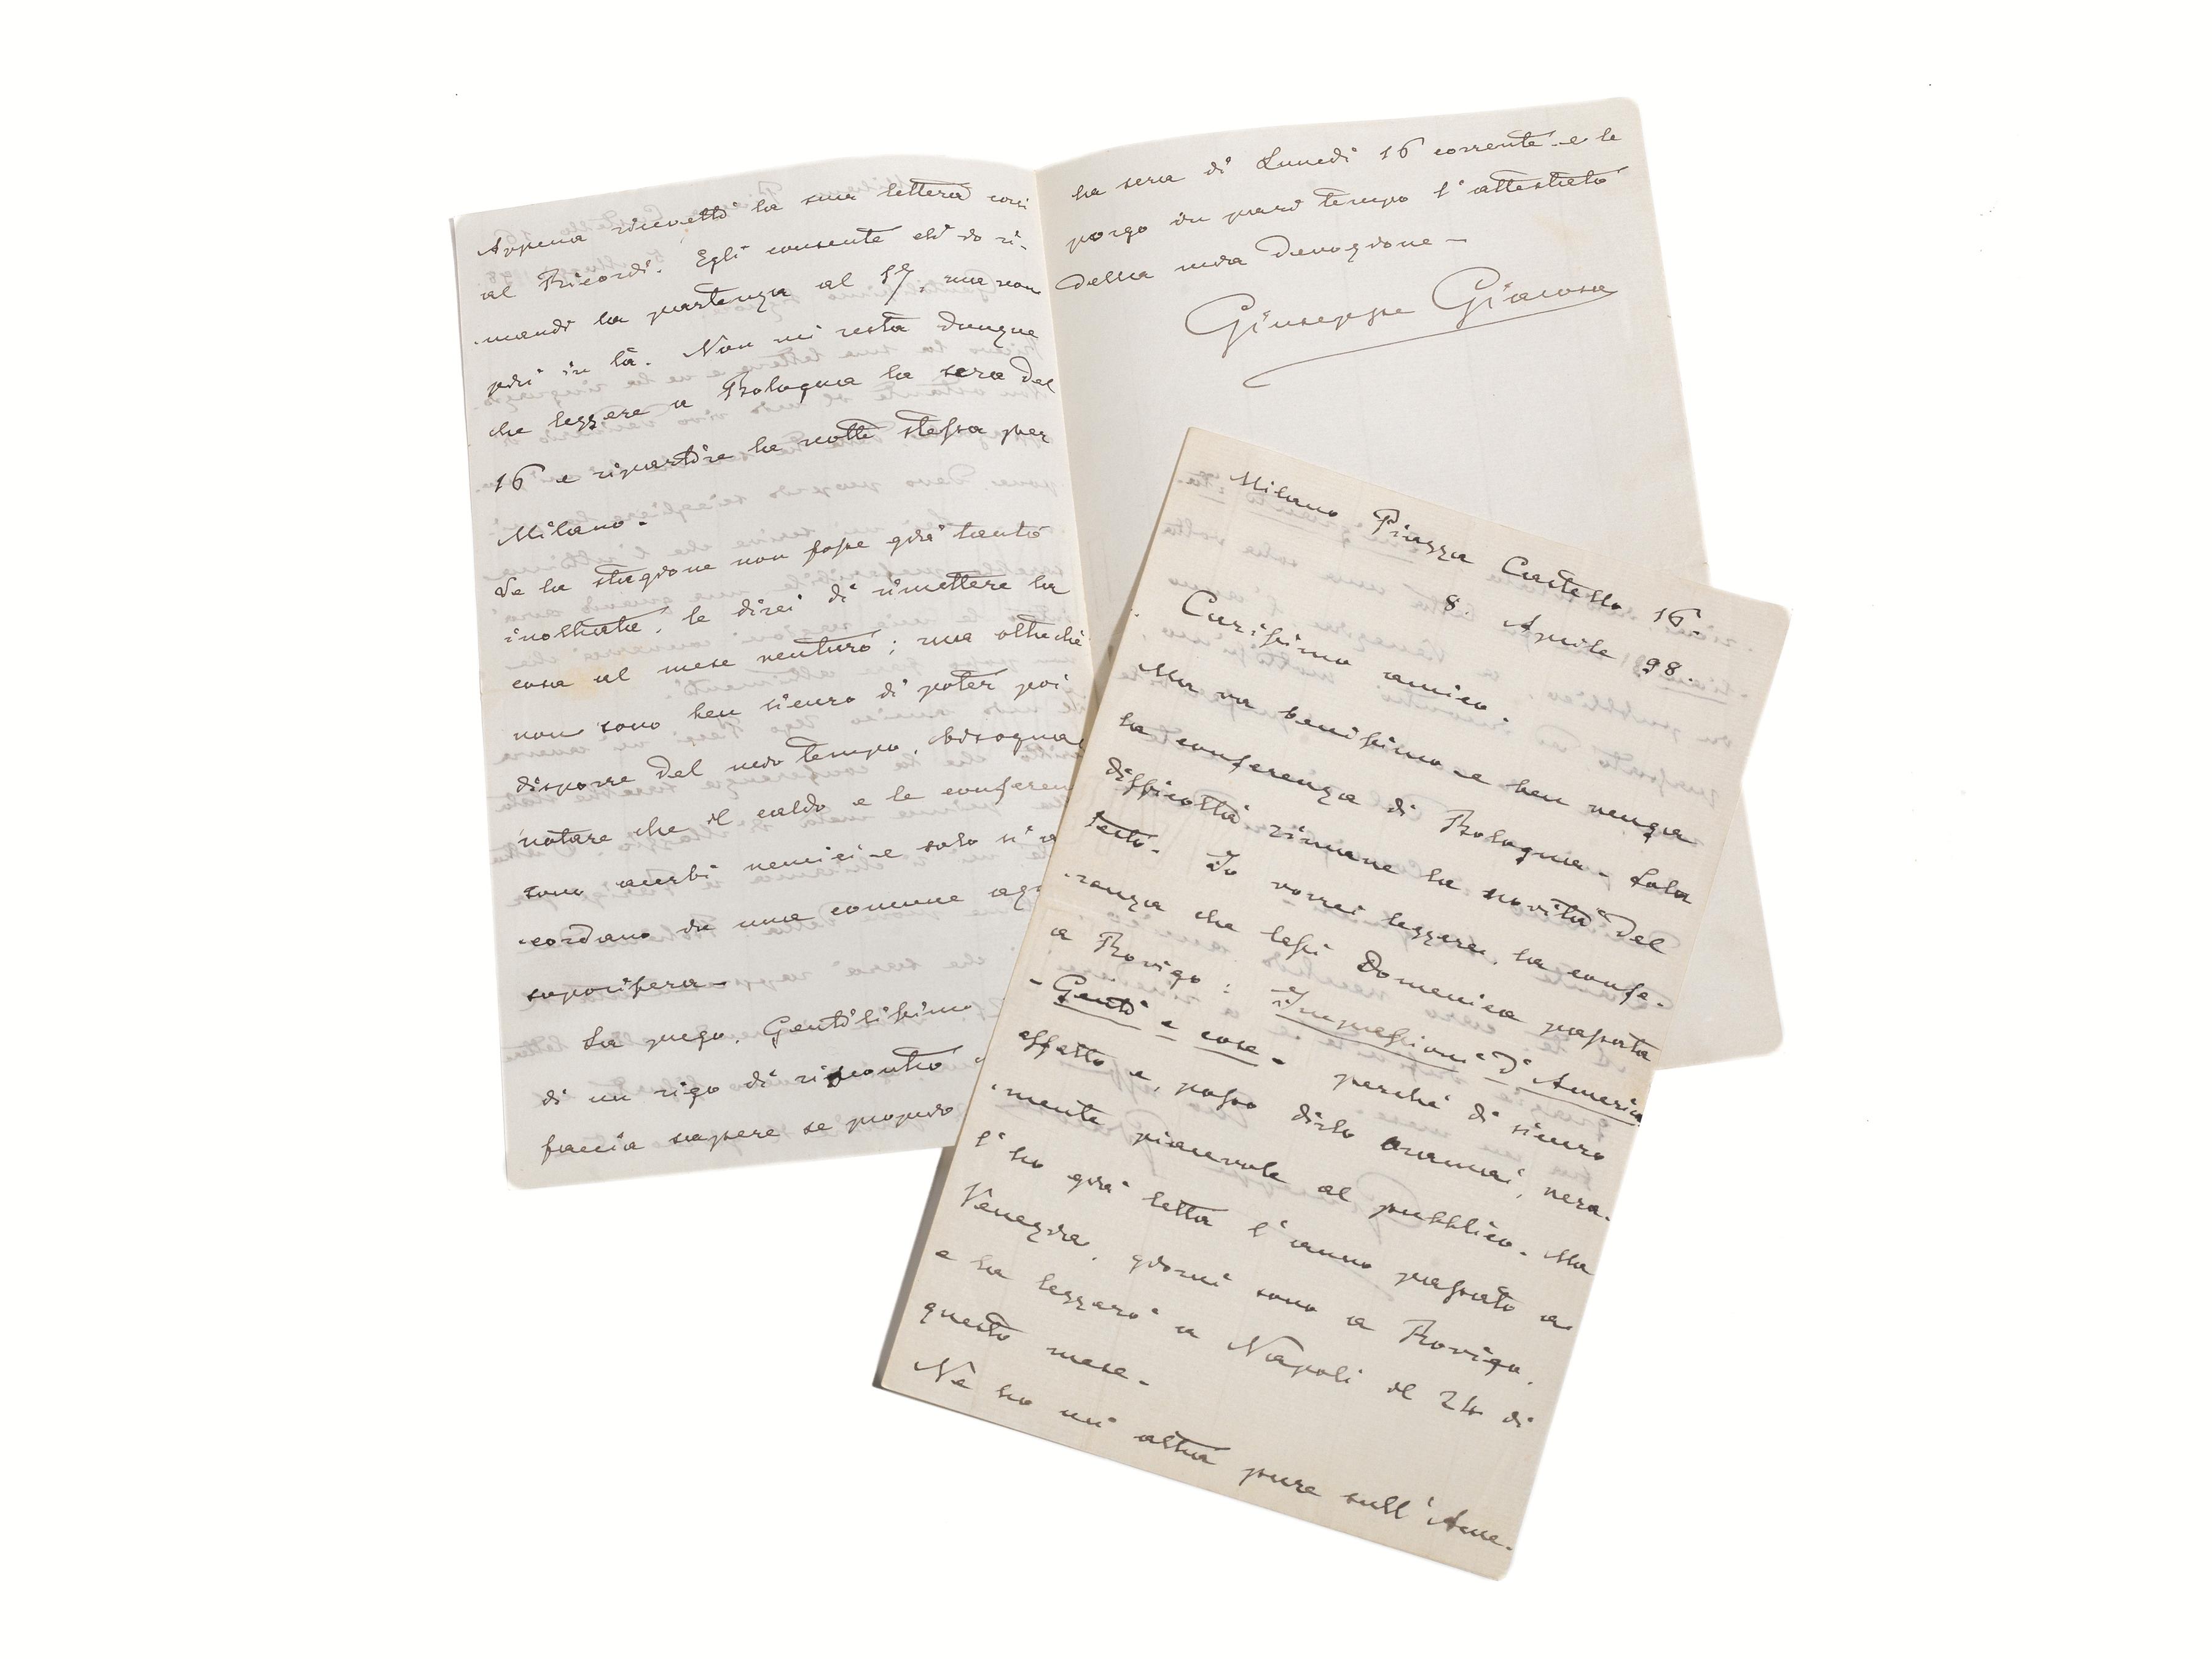 Appena ricevetti la sua lettera corsi
al Ricordi. Egli consente ch'io ri-
-mandi la partenza al 17, ma non
più in là. Non mi resta dunque
che leggere a Bologna la sera del
16 e ripartire la notte stessa per
Milano -
Se la stagione non fosse già tanto
inoltrata, le direi di rimettere la
cosa al mese venturo; ma oltrechè
non sono ben sicuro di poter poi
disporre del mio tempo, bisogna
notare che il caldo e le conferen
sono acerbi nemici e solo s'a
-cordano in una comune
soporifera -
La prego, Gentilissimo
di un rigo di riscontro
faccia sapere se proprio
la sera di Lunedì 16 corrente e le
porgo in pari tempo l'attestato
della mia devozione -
Giuseppe Giacosa
Milano Piazza Castello 16.
8. Aprile 98.
Carissimo amico.
Ma va benissimo e ben venga
la conferenza di Bologna - Sola
difficoltà rimane la novità del
testo. Io vorrei leggere, la confe-
-renza che lessi Domenica passata
a Rovigo: Impressioni d'America
- Genti e cose - perchè di sicuro
effetto e, posso dirlo oramai, vera-
-mente piacevole al pubblico. Ma
l'ho già letta l'anno passato a
Venezia, giorni sono a Rovigo,
e la leggerò a Napoli il 24 di
questo mese -
Nè ho un'altra pure sull'Ame-